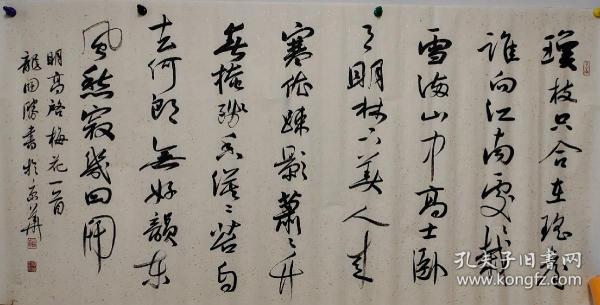 瓊枝只合在瑤台
誰向江南處〻栽
雪滿山中高士臥
月明林下美人来
寒依疎影蕭〻竹
春掩殘香漠〻苔自
去何郎無好韻東
風愁寂幾回開
明高啓梅花一首
龍田勝書於京華
孔夫子旧书网